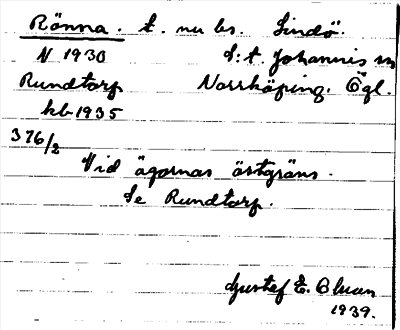 Rönna. t. nu bs. Lindö.
N 1930 S:t Johannis sn
Rundtorp Norrköping. Ögl.
hb 1935
376/2
Vid ägornas östgräns.
Se Rundtorp.
Gustaf E.
1939.